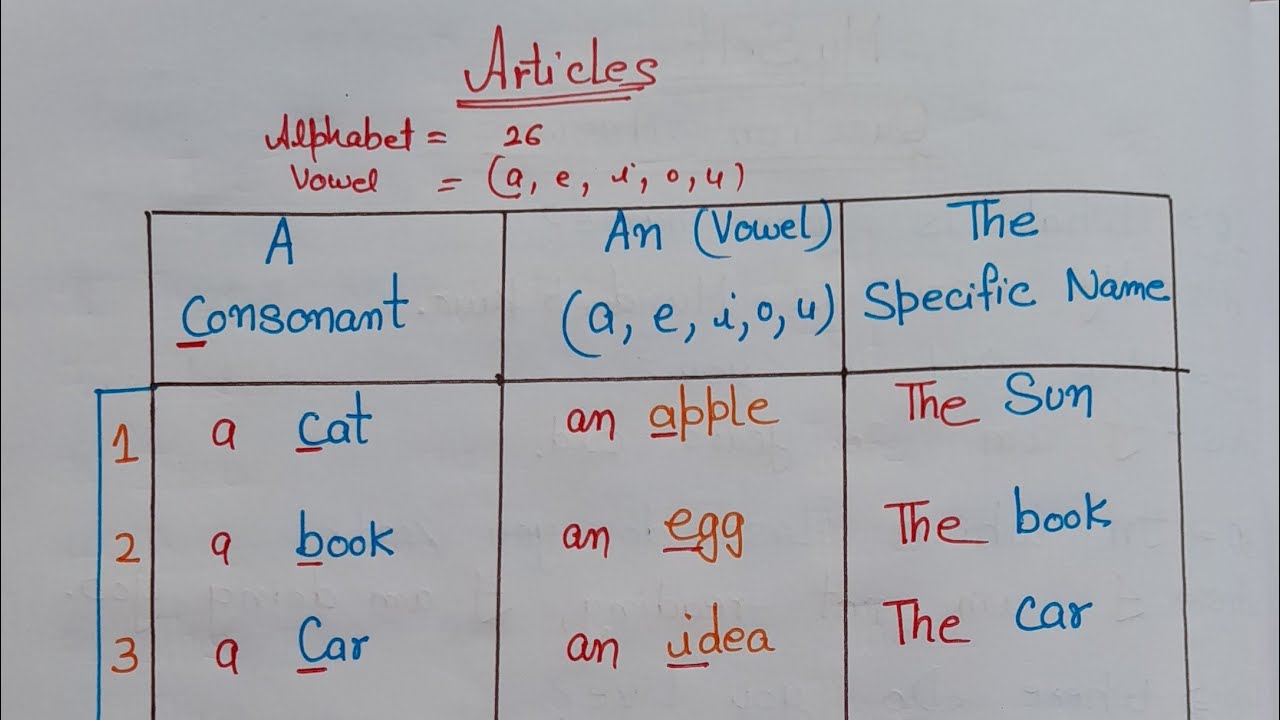 Articles
Alphabet = 26
Vowel = (a, e, i, o, u)
A An (Vowel) The
Consonant (a, e, i, o, u) Specific Name
1 a cat an apple The Sun
2 a book an egg The book
3 a Car an idea The car